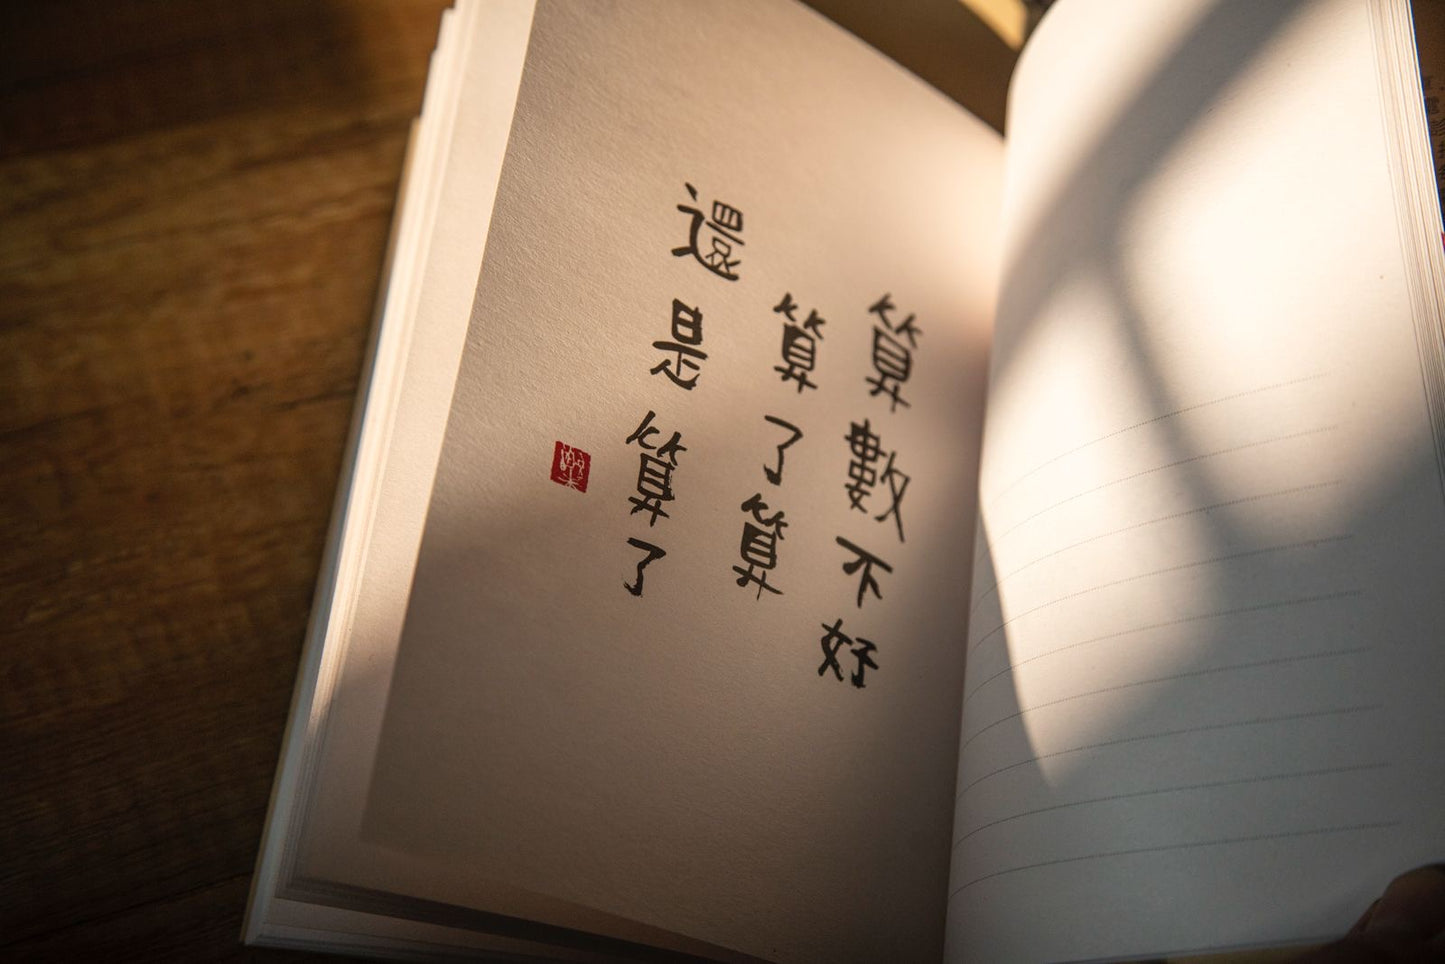 算數不好
算了算
還是算了